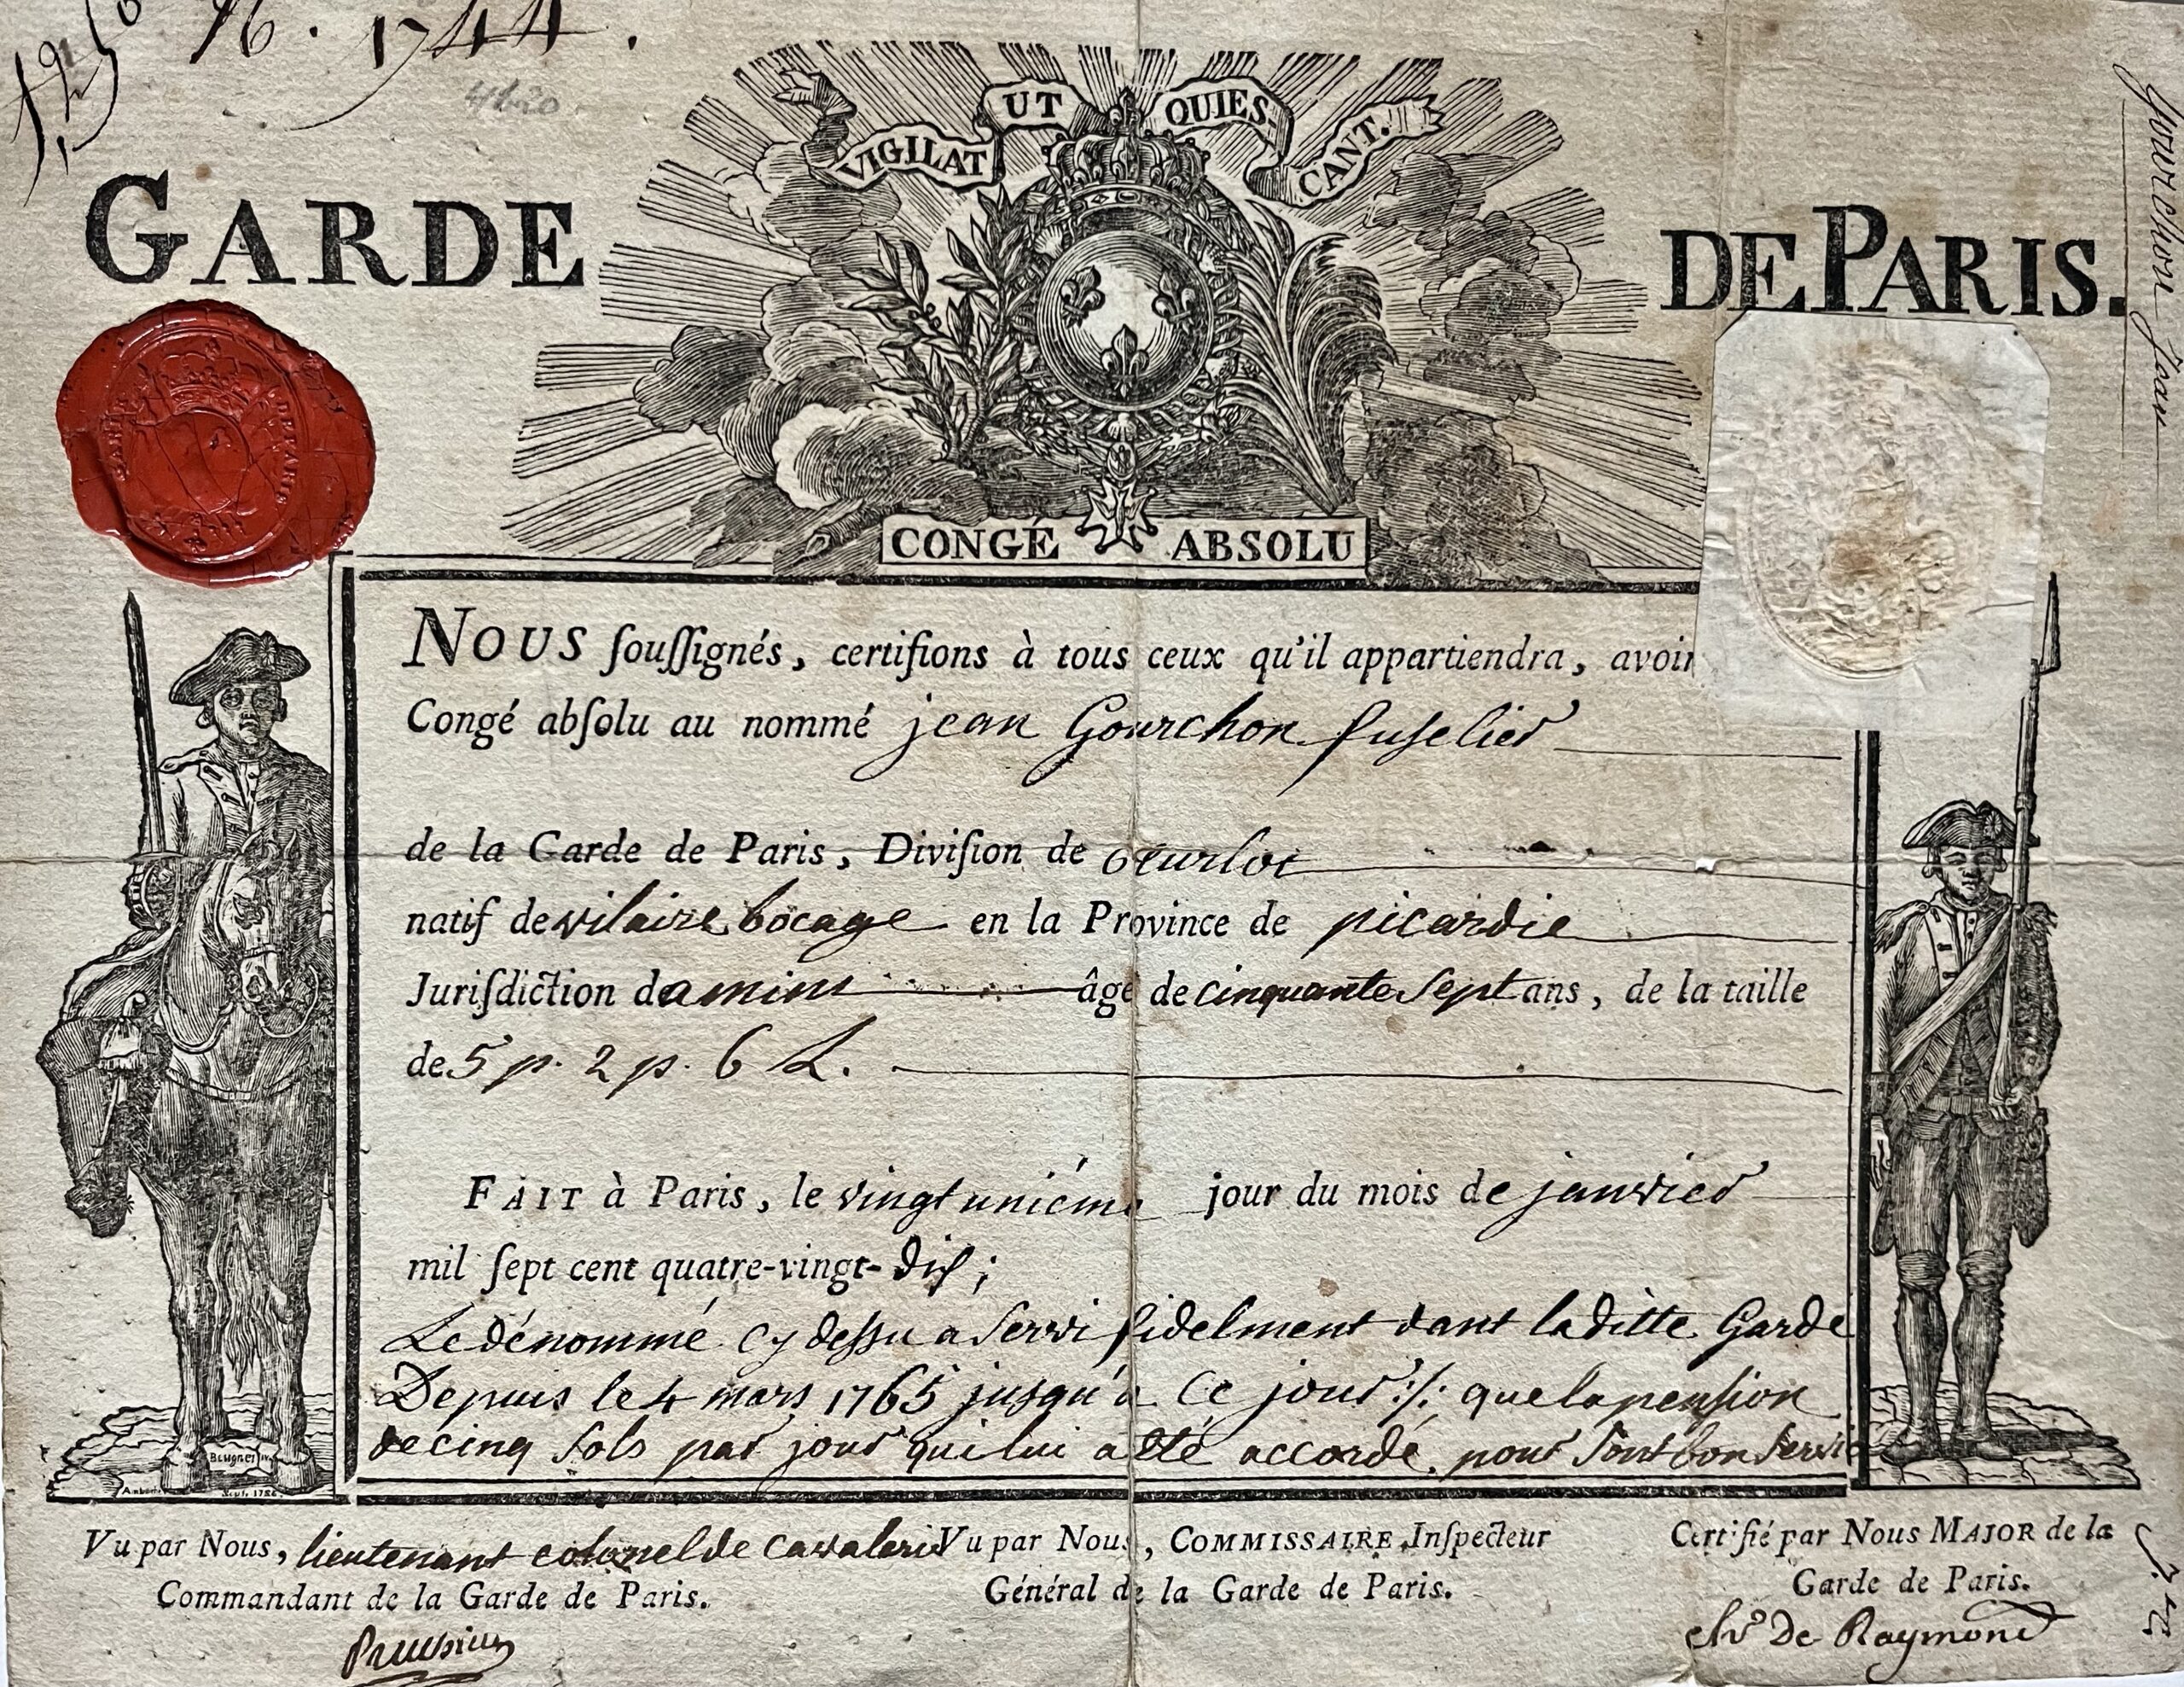 N. 1744.
4620
VIGILAT UT QUIES CANT.
GARDE DE PARIS.
Gourchon jean
DE PARIS
CONGÉ ABSOLU
NOUS ſouſſignés, certifions à tous ceux qu'il appartiendra, avoir
Congé abſolu au nommé jean Gourchon fuselier
de la Garde de Paris, Diviſion de
natif de vilaire bocage en la Province de picardie
Juriſdiction damins âgé de cinquante sept ans, de la taille
de 5 p. 2 p. 6 L.
FAIT à Paris, le vingt uniéme jour du mois de janvier
mil ſept cent quatre-vingt-dix;
Le dénommé cy dessu a servi fidelment dant laditte Garde
Depuis le 4 mars 1765 jusqu'a ce jour ./. que la pension
de cinq sols par jour qui lui a été accordé pour sont bon servi
Beugnet
Sept. 178
Vu par Nous, lieutenant colonel de cavalerie
Commandant de la Garde de Paris.
Vu par Nous, COMMISSAIRE Inſpecteur
Général de la Garde de Paris.
Certifié par Nous MAJOR de la
Garde de Paris.
chr De Raymond